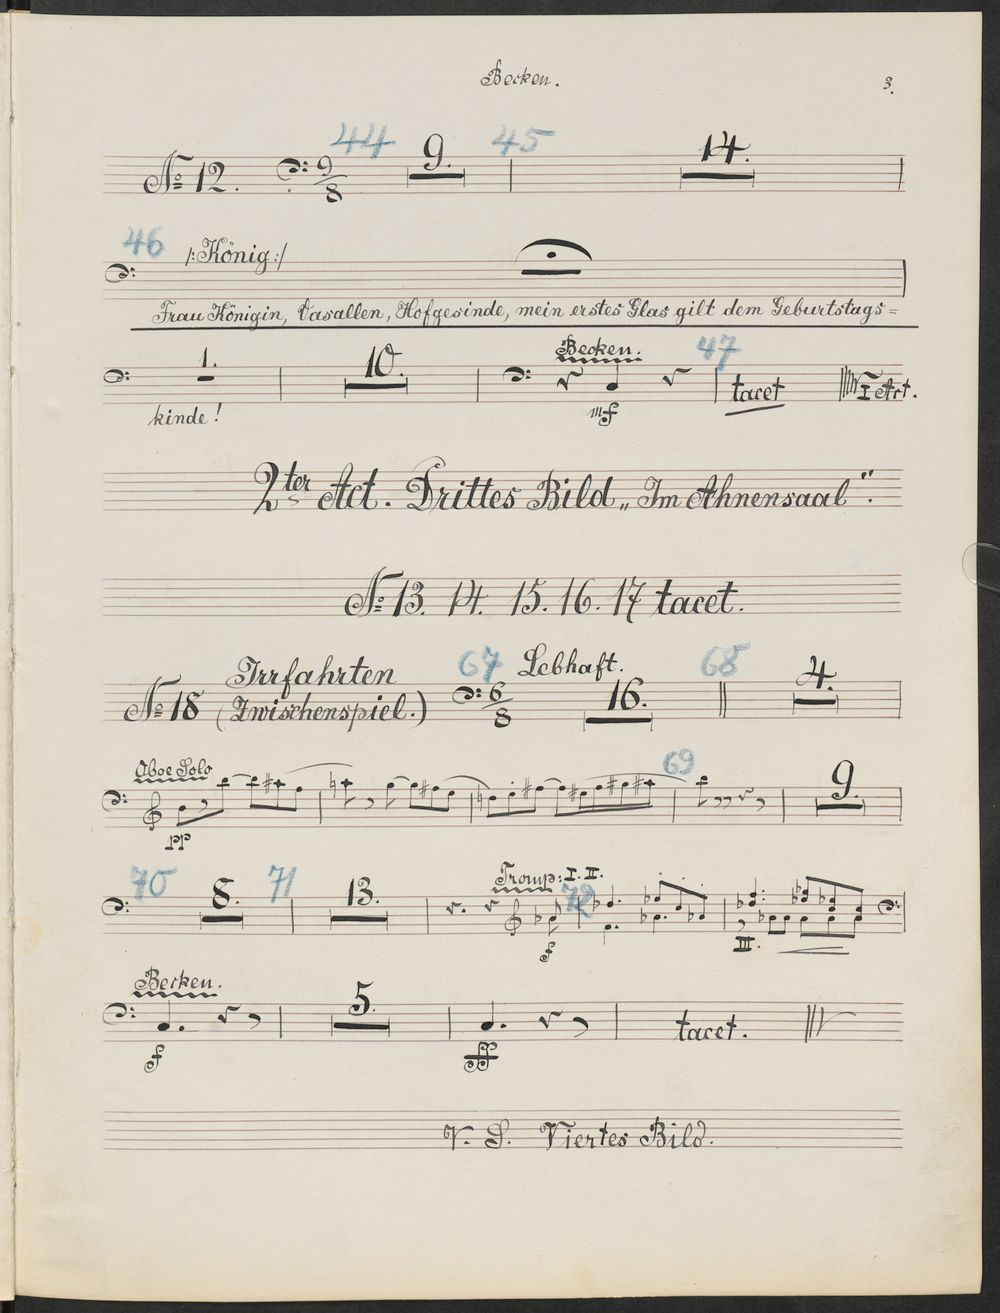 Becken. 3.
44 9. 45 14.
No 12. 9/8
46 /:König:/
Frau Königin, Vasallen, Hofgesinde, mein erstes Glas gilt dem Geburtstags=
1. 10. Becken. 47 tacet I Act.
kinde! mf
2ter Act. Drittes Bild „Im Ahnensaal".
No 13. 14. 15. 16. 17 tacet.
Irrfahrten 67 Lebhaft. 68 4.
No 18 (Zwischenspiel.) 6/8 16.
Oboe Solo 69 9.
pp
70 8. 71 13. Tromp: I. II. 72
f III.
Becken. 5. tacet.
f ff
V. S. Viertes Bild.